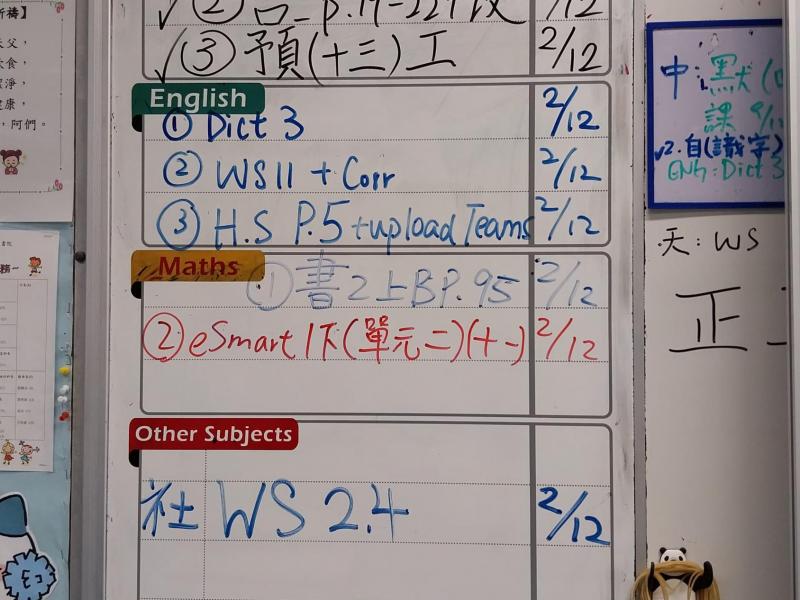 天父，
食，
潔淨，
健康，
，阿們。
② p.19-22
✓③ 預(十三)工 2/12
English
① Dict 3 2/12
② WS11 + Corr 2/12
③ H.S P.5 + upload Teams 2/12
Maths
① 書2上B P.95 2/12
② eSmart 1下(單元二)(十一) 2/12
Other Subjects
社 WS 2.4 2/12
中:默
課 9/1
✓2.自(識字)
ENG:Dict 3
天:WS
正